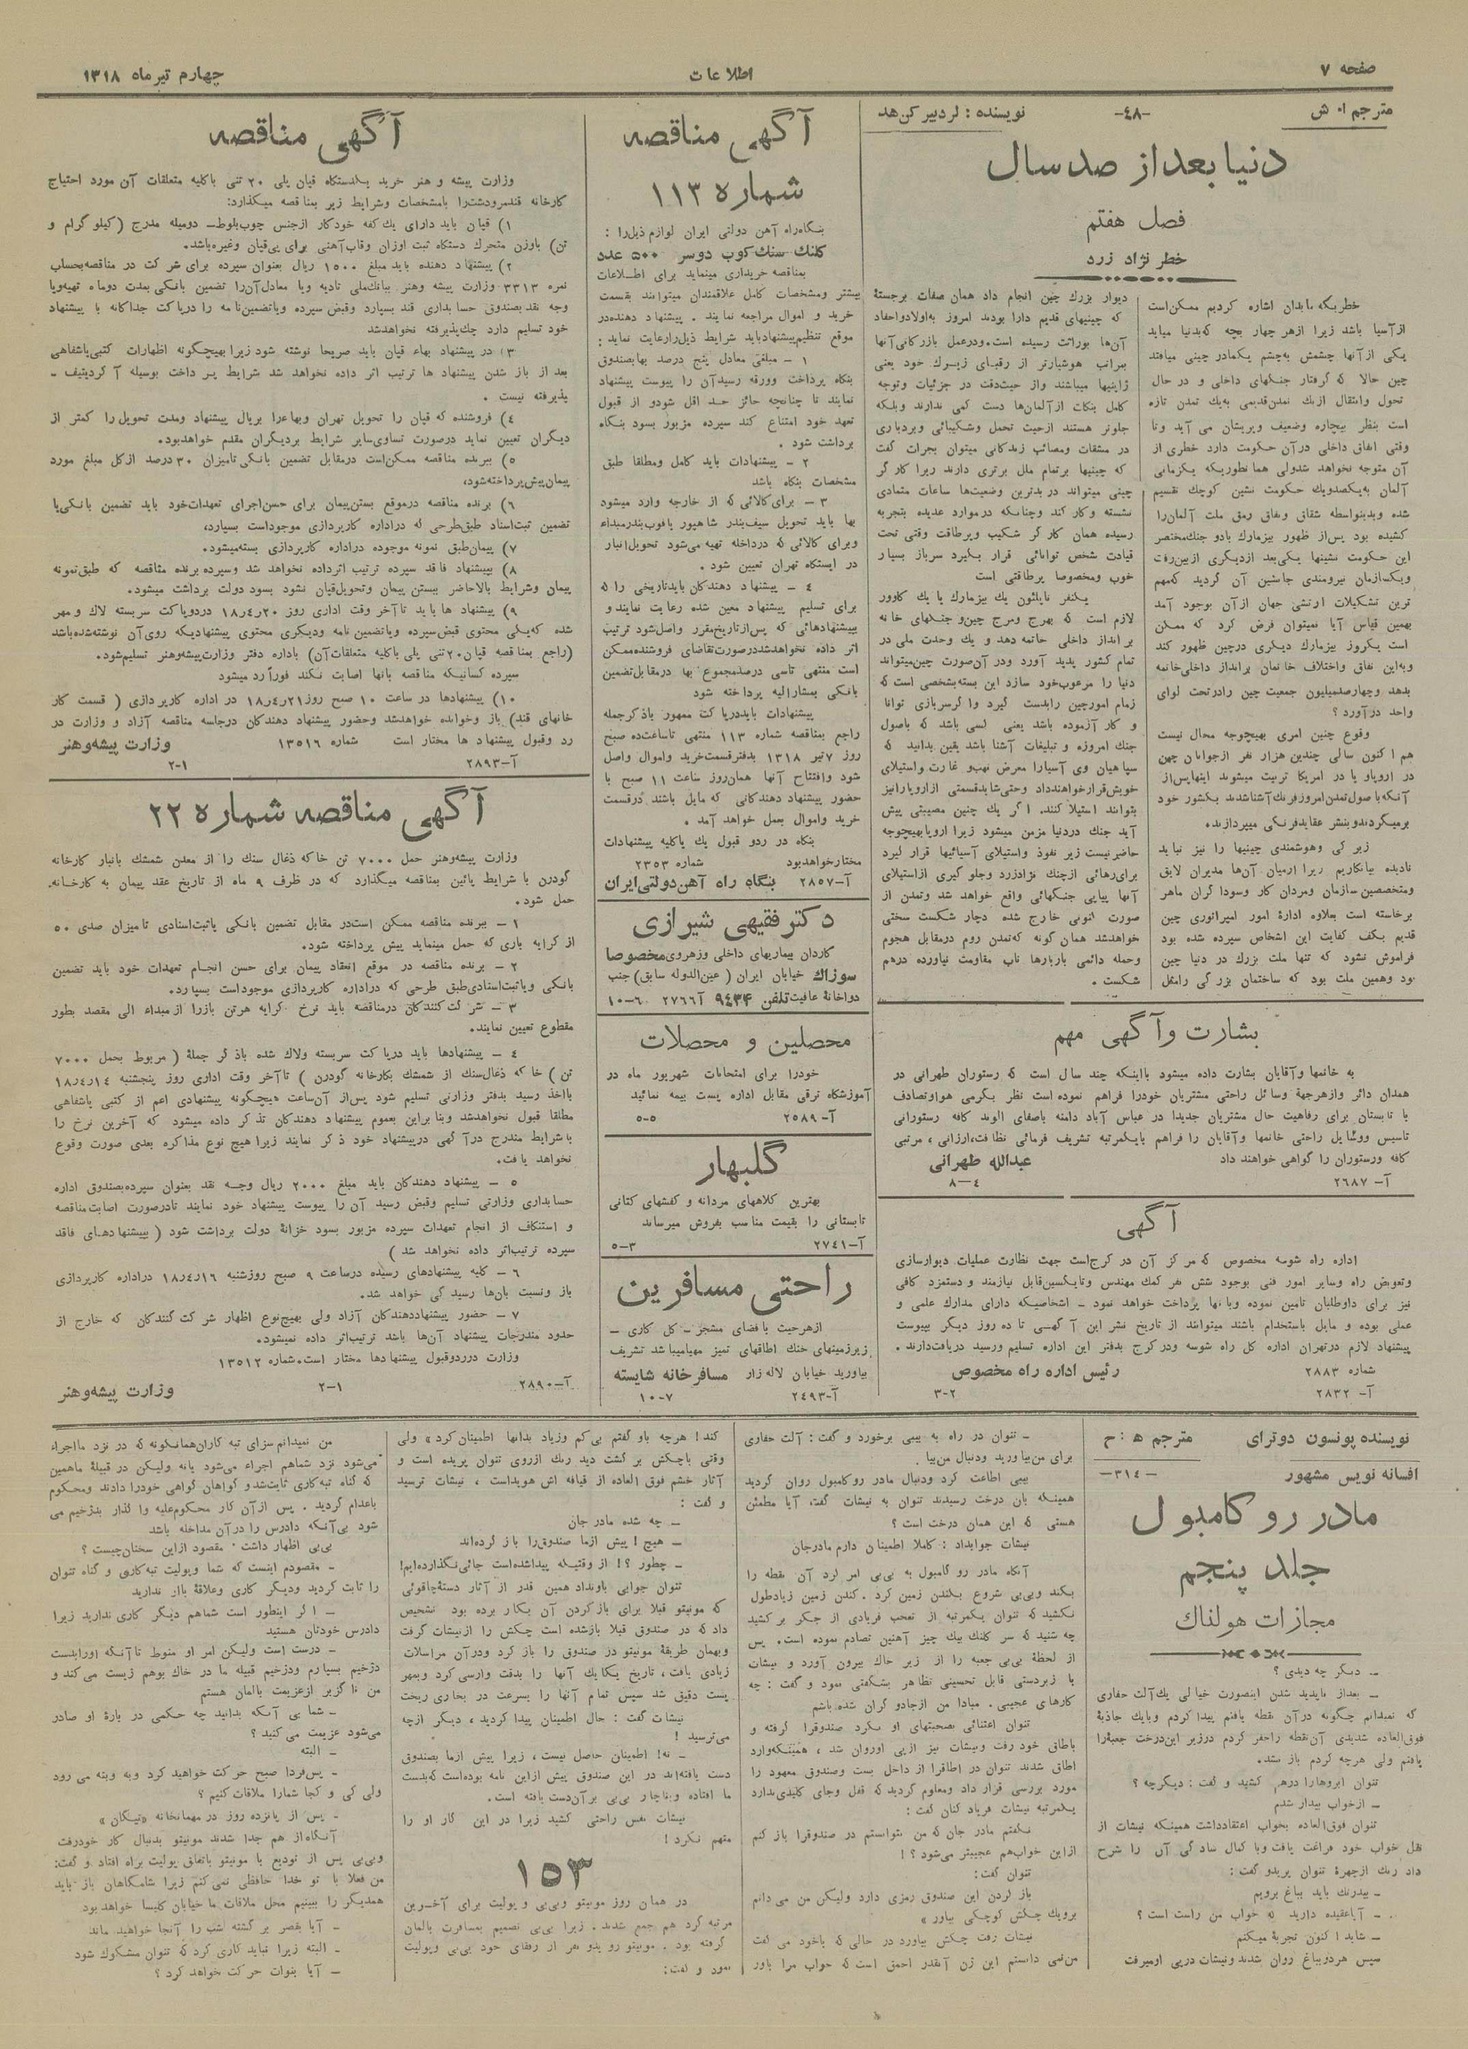 صفحه ۷
اطلاعات
چهارم تیرماه ۱۳۱۸
مترجم ا. ش
-٤٨-
نویسنده : لرد بیرکن هد
دنیا بعد از صد سال
فصل هفتم
خطر نژاد زرد
خطریکه مابدان اشاره کردیم ممکن‌است
از آسیا باشد زیرا از هر چهار بچه که‌بدنیا میاید
یکی از آنها چشمش به‌چشم یکمادر چینی میافتد
چین حالا که گرفتار جنگهای داخلی و در حال
تحول وانتقال از یك تمدن‌قدیمی به‌یك تمدن تازه
است بنظر بیچاره وضعیف وپریشان می آید وتا
وقتی اتفاق داخلی در آن حکومت دارد خطری از
آن متوجه نخواهد شد‌ولی همانطوریکه یکزمانی
آلمان به‌یکصدویك حکومت نشین کوچك تقسیم
شده وبدبواسطه شقاق ونفاق رمق ملت آلمان‌را
کشیده بود پس‌از ظهور بیزمارك بادو جنك‌مختصر
این حکومت نشینها یکی‌بعد ازدیگری از‌بین‌رفت
ترین تشکیلات ارتشی جهان از آن بوجود آمد
بهمین قیاس آیا نمیتوان فرض کرد که ممکن
است یکروز بیزمارك دیگری درچین ظهور کند
وبه‌این نفاق واختلاف خانمان برانداز داخلی‌خاتمه
بدهد وچهارصدمیلیون جمعیت چین رادرتحت لوای
واحد درآورد ؟
وقوع چنین امری بهیچوجه محال نیست
هم اکنون سالی چندین هزار نفر ازجوانان چین
در اروپاو یا در امریکا تربیت میشوند اینهاپس‌از
آنکه‌با‌صول‌تمدن‌امروز‌فرنك‌آشناشدند بکشور خود
برمیگردندوبنشر عقایدفرنگی میپردازند.
زیرکی وهوشمندی چینیها را نیز نباید
نادیده بیانگاریم زیرا ازمیان آن‌ها مدیران لایق
ومتخصصین‌سازمان ومردان کار وسوداگران ماهر
برخاسته است بعلاوه ادارهٔ امور امپراتوری چین
قدیم بکف کفایت این اشخاص سپرده شده بود
فراموش نشود که تنها ملت بزرك در دنیا چین
بود وهمین ملت بود که ساختمان بزرگی رامثل
دیوار بزرك چین انجام داد همان صفات برجستهٔ
که چینیهای قدیم دارا بودند امروز به‌اولاد‌واحفاد
آن‌ها بوراثت رسیده است.ودرعمل بازرگانی‌آنها
بمراتب هوشیارتر از رقبای زیرك خود یعنی
ژاپنیها میباشند واز حیث‌دقت در جزئیات وتوجه
کامل بنکات از آلمان‌ها دست کمی ندارند وبلکه
جلوتر هستند ازحیث تحمل وشکیبائی وبردباری
در مشقات ومصائب زندگانی میتوان بجرات گفت
که چینیها برتمام ملل برتری دارند زیرا کارگر
چینی میتواند در بدترین وضعیت‌ها ساعات متمادی
نشسته وکار کند وچنانکه درموارد عدیده بتجربه
رسیده همان کارگر شکیب وپرطاقت وقتی تحت
قیادت شخص توانائی قرار بگیرد سرباز بسیار
خوب ومخصوصا پرطاقتی است
یکنفر ناپلئون یك بیزمارك یا یك کاوور
لازم است که بهرج ومرج چین‌و جنگهای خانه
برانداز داخلی خاتمه دهد و یك وحدت ملی در
تمام کشور پدید آورد ودر آن‌صورت چین‌میتواند
دنیا را مرعوب‌خود سازد این بسته‌بشخصی است که
زمام امورچین رابدست گیرد واگرسربازی توانا
و کار آزموده باشد یعنی کسی باشد که باصول
جنك امروزه و تبلیغات آشنا باشد یقین بدانید که
سپاهیان وی آسیارا معرض نهب‌و غارت واستیلای
خویش‌قرارخواهندداد وحتی‌شایدقسمتی ازاروپارانیز
بتوانند استیلا کنند. اگر یك چنین مصیبتی پیش
آید جنك دردنیا مزمن میشود زیرا اروپا‌بهیچوجه
حاضرنیست زیر نفوذ واستیلای آسیائیها قرار گیرد
برای‌رهائی ازچنك نژادزرد وجلوگیری ازاستیلای
آنها پیاپی جنگهائی واقع خواهد شد وتمدن از
صورت کنونی خارج شده دچار شکست سختی
خواهدشد همان گونه که‌تمدن روم درمقابل هجوم
وحمله دائمی باربارها تاب مقاومت نیاورده درهم
شکست.
بشارت و آگهی مهم
به خانمها وآقایان بشارت داده میشود بااینکه چند سال است که رستوران طهرانی در
همدان دائر وازهرجهة وسائل راحتی مشتریان خودرا فراهم نموده است نظر بگرمی هواوتصادف
با تابستان برای رفاهیت حال مشتریان جدیدا در عباس آباد دامنه باصفای الوند کافه رستورانی
تاسیس ووسایل راحتی خانمها وآقایان را فراهم بایکمرتبه تشریف فرمائی نظافت،ارزانی، مرتبی
کافه ورستوران را گواهی خواهند داد
عبدالله طهرانی
آ- ٢٦٨٧
٤-٨
آگهی
اداره راه شوسه مخصوص که مرکز آن در کرج‌است جهت نظارت عملیات دیوارسازی
وتعویض راه وسایر امور فنی بوجود شش نفر کمك مهندس وتایکسین‌قابل نیازمند و دستمزد کافی
نیز برای داوطلبان تامین نموده وبانها پرداخت خواهد نمود - اشخاصیکه دارای مدارك علمی و
عملی بوده و مایل باستخدام باشند میتوانند از تاریخ نشر این آگهی تا ده روز دیگر بپیوست
پیشنهاد لازم درتهران اداره کل راه شوسه ودرکرج بدفتر این اداره تسلیم ورسید دریافت‌دارند.
شماره ٢٨٨٣
رئیس اداره راه مخصوص
آ- ٢٨٣٢
٣-٢
آگهی مناقصه
شماره ۱۱۳
بنگاه‌راه آهن دولتی ایران لوازم ذیل‌را :
کلنك سنك‌کوب دوسر ٥٠٠ عدد
بمناقصه خریداری مینماید برای اطلاعات
بیشتر ومشخصات کامل علاقمندان میتوانند بقسمت
خرید و اموال مراجعه نمایند . پیشنهاد دهنده‌در
موقع تنظیم‌پیشنهادباید شرایط ذیل‌رارعایت نماید :
١ - مبلغی معادل پنج درصد بهابصندوق
بنگاه پرداخت وورقه رسیدآن را پیوست پیشنهاد
نمایند تا چنانچه حائز حد اقل شودو از قبول
تعهد خود امتناع کند سپرده مزبور بسود بنگاه
برداشت شود .
٢ - پیشنهادات باید کامل ومطلقا طبق
مشخصات بنگاه باشد
٣ - برای‌کالائی که از خارجه وارد میشود
بها باید تحویل سیف‌بندر شاهپور یافوب‌بندرمبداء
وبرای کالائی که درداخله تهیه می‌شود تحویل‌انبار
در ایستگاه تهران تعیین شود .
٤ - پیشنهاد دهندگان بایدتاریخی را که
برای تسلیم پیشنهاد معین شده رعایت نمایند و
بپیشنهادهائی که پس‌ازتاریخ‌مقرر واصل‌شود ترتیب
اثر داده نخواهدشددرصورت‌تقاضای فروشنده‌ممکن
است منتهی تاسی درصدمجموع بها درمقابل‌تضمین
بانکی بمشارالیه پرداخته شود
پیشنهادات بایددرپاکت ممهور باذکرجمله
راجع بمناقصه شماره ١١٣ منتهی تاساعت‌ده صبح
روز ٧تیر ١٣١٨ بدفترقسمت‌خرید واموال واصل
شود وافتتاح آنها همان‌روز ساعت ١١ صبح با
حضور پیشنهاد دهندکانی که مایل باشند درقسمت
خرید واموال بعمل خواهد آمد .
بنگاه در ردو قبول یك یاکلیه پیشنهادات
مختارخواهدبود
شماره ٢٣٥٣
آ-٢٨٥٧
بنگاه راه آهن‌دولتی‌ایران
دکتر فقیهی شیرازی
کاردان بیماریهای داخلی وزهروی‌مخصوصا
سوزاك خیابان ایران (عین‌الدوله سابق) جنب
دواخانهٔ عافیت‌تلفن ٩٤٣٤ آ-٢٧٦٦ ٦-١٠
محصلین و محصلات
خودرا برای امتحانات شهریور ماه در
آموزشگاه ترقی مقابل اداره پست بیمه نمائید
آ-٢٥٨٩
٥-٥
گلبهار
بهترین کلاههای مردانه و کفشهای کتانی
تابستانی را بقیمت مناسب بفروش میرساند
آ-٢٧٤١
٣-٥
راحتی مسافرین
ازهرحیث بافضای مشجر - گل کاری -
زیرزمینهای خنك اطاقهای تمیز مهیامیباشد تشریف
بیاورید خیابان لاله‌زار مسافرخانه شایسته
آ-٢٤٩٣
٧-١٠
آگهی مناقصه
وزارت پیشه و هنر خرید یکدستگاه قپان پلی ٢٠ تنی باکلیه متعلقات آن مورد احتیاج
کارخانه قندمرودشت‌را بامشخصات وشرایط زیر بمناقصه میگذارد:
١) قپان باید دارای یك کفه خودکار ازجنس چوب‌بلوط- دومیله مدرج (کیلوگرام و
تن) باوزن متحرك دستگاه ثبت اوزان وقاب‌آهنی برای پی‌قپان وغیره‌باشد.
٢) پیشنهاد دهنده باید مبلغ ١٥٠٠ ریال بعنوان سپرده برای شرکت در مناقصه‌بحساب
نمره ٣٣١٣ وزارت پیشه وهنر ببانك‌ملی تادیه ویا معادل‌آن‌را تضمین بانکی بمدت دوماه تهیه‌ویا
وجه نقدبصندوق حسابداری قند بسپارد وقبض سپرده ویاتضمین‌نامه را درپاکت جداگانه با پیشنهاد
خود تسلیم دارد چك‌پذیرفته نخواهدشد
٣) در پیشنهاد بهاء قپان باید صریحا نوشته شود زیرا بهیچگونه اظهارات کتبی‌یاشفاهی
بعد از باز شدن پیشنهاد ها ترتیب اثر داده نخواهد شد شرایط پرداخت بوسیله آکردیتیف -
پذیرفته نیست .
٤) فروشنده که قپان را تحویل تهران وبهاءرا بریال پیشنهاد ومدت تحویل‌را کمتر از
دیگران تعیین نماید درصورت تساوی‌سایر شرایط بردیگران مقدم خواهدبود.
٥) ببرنده مناقصه ممکن‌است درمقابل تضمین بانکی تامیزان ٣٠درصد ازکل مبلغ مورد
پیمان‌پیش‌پرداخته‌شود،
٦) برنده مناقصه درموقع بستن‌پیمان برای حسن‌اجرای تعهدات‌خود باید تضمین بانکی‌یا
تضمین ثبت‌اسناد طبق‌طرحی که دراداره کارپردازی موجوداست بسپارد،
٧) پیمان‌طبق نمونه موجوده دراداره کارپردازی بسته‌میشود.
٨) بپیشنهاد فاقد سپرده ترتیب اثرداده نخواهد شد وسپرده‌برنده مناقصه که طبق‌نمونه
پیمان وشرایط بالاحاضر ببستن پیمان وتحویل‌قپان نشود بسود دولت برداشت میشود.
٩) پیشنهاد ها باید تاآخر وقت اداری روز ١٨ر٤ر٢٠ درد‌وپاکت سربسته لاك و مهر
شده که‌یکی محتوی قبض‌سپرده ویاتضمین نامه ودیگری محتوی پیشنهادیکه روی‌آن نوشته‌شده‌باشد
(راجع بمناقصه قپان‌٢٠تنی پلی باکلیه متعلقات‌آن) باداره دفتر وزارت‌پیشه‌وهنر تسلیم‌شود.
سپرده کسانیکه مناقصه بانها اصابت نکند فوراً رد میشود
١٠) پیشنهادها در ساعت ١٠ صبح روز٢١ر٤ر١٨ در اداره کارپردازی ( قسمت کار
خانهای قند) باز وخوانده خواهدشد وحضور پیشنهاد دهندگان درجاسه مناقصه آزاد و وزارت در
رد وقبول پیشنهاد ها مختار است
شماره ١٣٥١٦
وزارت پیشه‌وهنر
آ-٢٨٩٣
١-٢
آگهی مناقصه شماره ۲۲
وزارت پیشه‌وهنر حمل ٧٠٠٠ تن خاکه ذغال سنك را از معدن شمشك بانبار کارخانه
گودرن با شرایط پائین بمناقصه میگذارد که در ظرف ٩ ماه از تاریخ عقد پیمان به کارخانه
حمل شود.
١ - ببرنده مناقصه ممکن است‌در مقابل تضمین بانکی یاثبت‌اسنادی تامیزان صدی ٥٠
از کرایه باری که حمل مینماید پیش پرداخته شود.
٢ - برنده مناقصه در موقع انعقاد پیمان برای حسن انجام تعهدات خود باید تضمین
بانکی ویاثبت‌اسنادی‌طبق طرحی که دراداره کارپردازی موجوداست بسپارد.
٣ - شرکت‌کنندگان درمناقصه باید نرخ کرایه هرتن باررا ازمبداء الی مقصد بطور
مقطوع تعیین نمایند.
٤ - پیشنهادها باید درپاکت سربسته ولاك شده باذکر جملهٔ ( مربوط بحمل ٧٠٠٠
تن ) خاکه ذغال‌سنك از شمشك بکارخانه گودرن ) تاآخر وقت اداری روز پنجشنبه ١٤ر٤ر١٨
بااخذ رسید بدفتر وزارتی تسلیم شود پس‌از آن‌ساعت هیچگونه پیشنهادی اعم از کتبی یاشفاهی
مطلقا قبول نخواهدشد وبنابراین بعموم پیشنهاد دهندگان تذکر داده میشود که آخرین نرخ را
باشرایط مندرج درآگهی درپیشنهاد خود ذکر نمایند زیرا هیچ نوع مذاکره بعدی صورت وقوع
نخواهد یافت.
٥ - پیشنهاد دهندگان باید مبلغ ٢٠٠٠ ریال وجه نقد بعنوان سپرده‌بصندوق اداره
حسابداری وزارتی تسلیم وقبض رسید آن را پیوست پیشنهاد خود نمایند تادرصورت اصابت‌مناقصه
و استنکاف از انجام تعهدات سپرده مزبور بسود خزانهٔ دولت برداشت شود ( بپیشنهادهای فاقد
سپرده ترتیب‌اثر داده نخواهد شد )
٦ - کلیه پیشنهادهای رسیده درساعت ٩ صبح روزشنبه ١٦ر٤ر١٨ دراداره کارپردازی
باز ونسبت بان‌ها رسیدگی خواهد شد.
٧ - حضور پیشنهاددهندگان آزاد ولی بهیچ‌نوع اظهار شرکت‌کنندگان که خارج از
حدود مندرجات پیشنهاد آن‌ها باشد ترتیب‌اثر داده نمیشود.
وزارت دررد‌وقبول پیشنهادها مختار است.شماره ١٣٥١٢
آ-٢٨٩٠
١-٢
وزارت پیشه‌وهنر
نویسنده پونسون دوترای
مترجم ه : ح
افسانه نویس مشهور
-٣١٤-
مادر رو کامبول
جلد پنجم
مجازات هولناك
- دیگر چه دیدی ؟
- بعداز ناپدید شدن اینصورت خیالی یك‌آلت حفاری
که نمیدانم چگونه درآن نقطه یافتم پیدا کردم وبایك جاذبهٔ
فوق‌العاده شدیدی آن‌نقطه راحفر کردم درزیر این‌درخت جعبه‌را
یافتم ولی هرچه کردم باز نشد.
تنوان ابروهارا درهم کشید و گفت : دیگرچه ؟
- ازخواب بیدار شدم
تنوان فوق‌العاده بخواب اعتقادداشت همینکه نیشات از
نقل خواب خود فراغت یافت‌وبا کمال سادگی آن را شرح
داد رنك ازچهرهٔ تنوان پریدو گفت:
- بیدرنك باید بباغ برویم
- آیا‌عقیده دارید که خواب من راست است ؟
- شاید اکنون تجربهٔ میکنم
سپس هردوبباغ روان شدند ونیشات درپی اومیرفت
- تنوان در راه به بیبی برخورد و گفت : آلت حفاری
برای من‌بیاورید ودنبال من‌بیا .
بیبی اطاعت کرد ودنبال مادر روکامبول روان گردید
همینکه بان درخت رسیدند تنوان به نیشات گفت: آیا مطمئن
هستی که این همان درخت است ؟
نیشات جوابداد : کاملا اطمینان دارم مادرجان
آنگاه مادر رو کامبول به بی‌بی امر کرد آن نقطه را
بکند وبی‌بی شروع بکندن زمین کرد . کندن زمین زیادطول
نکشید که تنوان یکمرتبه از تعجب فریادی از جگر برکشید
چه شنید که سر کلنك بیك چیز آهنین تصادم نموده است. پس
از لحظهٔ بی‌بی جعبه را از زیر خاك بیرون آورد و نیشات
با زبردستی قابل تحسینی تظاهر بشگفتی نمود و گفت : چه
کارهای عجیبی. مبادا من ازجادو گران شده باشم
تنوان اعتنائی بصحبتهای او نکرد صندوقرا گرفته و
باطاق خود رفت ونیشات نیز ازپی اوروان شد ، همینکه‌وارد
اطاق شدند تنوان در اطاقرا از داخل بست وصندوق معهود را
مورد بررسی قرار داد ومعلوم گردید که قفل وجای کلیدی‌ندارد
یکمرتبه نیشات فریاد کنان گفت :
نگفتم مادر جان که من نتوانستم در صندوقرا باز کنم
ازاین خواب‌هم عجیبتر می‌شود ؟!
تنوان گفت:
باز کردن این صندوق رمزی دارد ولیکن من می دانم
برویك چکش کوچکی بیاور »
نیشات رفت چکش بیاورد در حالی که باخود می گفت
من‌نمی دانستم این زن آنقدر احمق است که خواب مرا باور
کند ! هرچه باو گفتم بی‌کم وزیاد بدانها اطمینان‌کرد » ولی
وقتی باچکش برگشت دید رنك ازروی تنوان پریده است و
آثار خشم فوق العاده از قیافه اش هویداست ، نیشات ترسید
و گفت :
- چه شده مادر جان
- هیچ ! پیش ازما صندوق‌را باز کرده‌اند
- چطور ؟! از وقتیکه پیداشده‌است جائی‌نگذارده‌ایم!
تنوان جوابی باونداد همین قدر از آثار دستهٔ‌چاقوئی
که مونیتو قبلا برای باز کردن آن بکار برده بود تشخیص
داد که در صندوق قبلا بازشده است چکش را ازنیشات گرفت
وبهمان طریقهٔ مونیتو در صندوق را باز کرد ودرآن مراسلات
زیادی یافت، تاریخ یکایك آنها را بدقت وارسی کردوبمهر
پست دقیق شد سپس تمام آنها را بسرعت در بخاری ریخت
نیشات گفت : حال اطمینان پیدا کردید ، دیگر ازچه
می‌ترسید !
- نه! اطمینان حاصل نیست ، زیرا پیش ازما بصندوق
دست یافته‌اند در این صندوق پیش ازاین نامه بوده‌است که‌بدست
ما افتاده وبناچار بی‌بی برآن‌دست یافته است.
نیشات نفس راحتی کشید زیرا در این کار او را
متهم نکرد !
۱۵۳
در همان روز مونیتو وبی‌بی و یولیت برای آخرین
مرتبه گرد هم جمع شدند . زیرا بی‌بی تصمیم بمسافرت بالمان
گرفته بود . مونیتو رو بدو نفر از رفقای خود بی‌بی ویولیت
نمود و گفت:
من نمیدانم سزای تبه کاران‌همانگونه که در نزد مااجراء
می‌شود نزد شماهم اجراء می‌شود یانه ولیکن در قبیلهٔ ماهمین
که گناه تبه‌کاری ثابت‌شد‌و گواهان گواهی خودرا دادند ومحکوم
باعدام گردید . پس ازآن کار محکوم‌علیه وا گذار بدژخیم می
شود بی‌آنکه دادرس را درآن مداخله باشد
بی‌بی اظهار داشت . مقصود ازاین سخنان‌چیست ؟
- مقصودم اینست که شما ویولیت تبه‌کاری و گناه تنوان
را ثابت کردید ودیگر کاری وعلاقهٔ باآن ندارید
- اگر اینطور است شماهم دیگر کاری ندارید زیرا
دادرس خودتان هستید
- درست است ولیکن امر او منوط تاآنکه اورا‌بدست
دژخیم بسپارم ودژخیم قبیله ما در خاك بوهم زیست می‌کند و
من نا گزیر از‌عزیمت بالمان هستم
- شما بی آنکه بدانید چه حکمی در بارهٔ او صادر
می‌شود عزیمت می‌کنید ؟
- البته
- پس‌فردا صبح حرکت خواهید کرد وبه وینه می رود
ولی کی و کجا شمارا ملاقات کنیم ؟
- پس از پانزده روز در مهمانخانه «تیگان »
آنگاه‌از هم جدا شدند مونیتو بدنبال کار خودرفت
وبی‌بی پس از تودیع با مونیتو باتفاق یولیت براه افتاد و گفت:
من فعلا با تو خدا حافظی نمی‌کنم زیرا شامگاهان باز باید
همدیگر را ببینیم محل ملاقات ما خیابان کلیسا خواهد‌بود
- آیا بقصر برگشته امشب را آنجا خواهید ماند
- البته زیرا نباید کاری کرد که تنوان مشکوك شود
- آیا بنوات حرکت خواهد کرد ؟